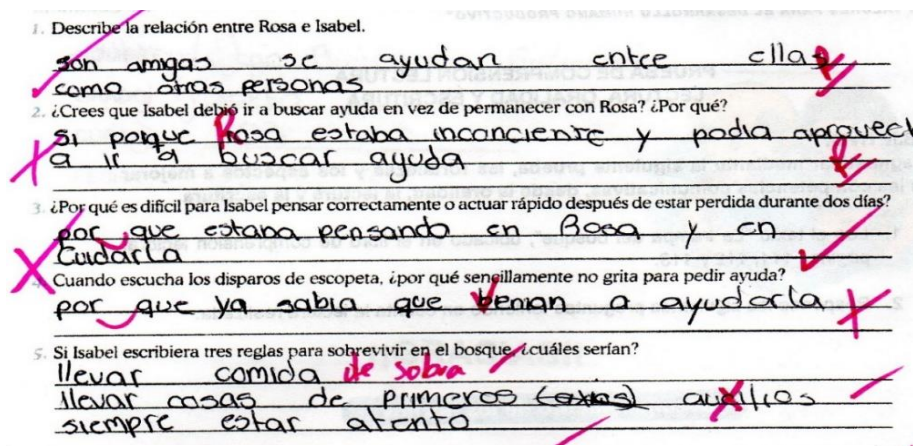 1. Describe la relación entre Rosa e Isabel.
son amigas se ayudan entre ellas
como otras personas
2. ¿Crees que Isabel debió ir a buscar ayuda en vez de permanecer con Rosa? ¿Por qué?
si porque Rosa estaba inconciente y podia aprovech
a ir a buscar ayuda
3. ¿Por qué es difícil para Isabel pensar correctamente o actuar rápido después de estar perdida durante dos días?
por que estaba pensando en Rosa y en
Cuidarla
4. Cuando escucha los disparos de escopeta, ¿por qué sencillamente no grita para pedir ayuda?
por que ya sabia que venian a ayudarla
5. Si Isabel escribiera tres reglas para sobrevivir en el bosque, ¿cuáles serían?
llevar comida de sobra
llevar cosas de primeros auxilios
siempre estar atento